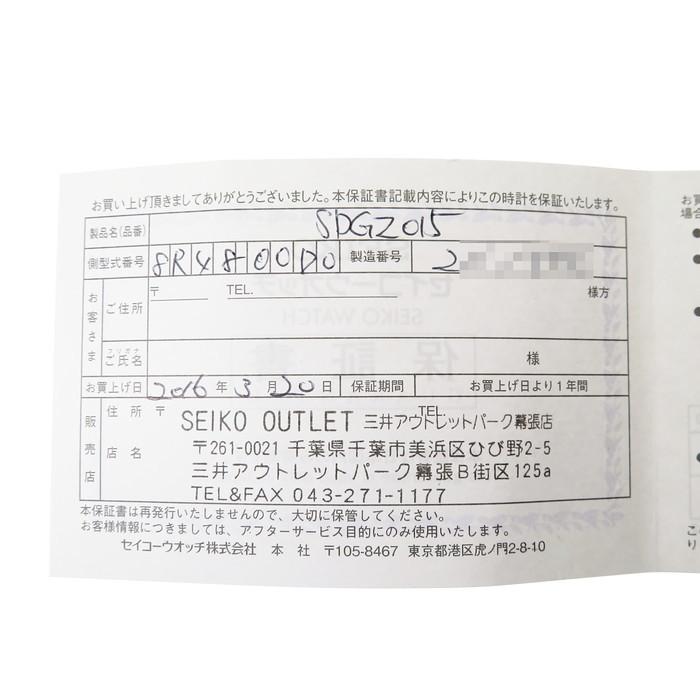 お買い上げ頂きましてありがとうございました。本保証書記載内容によりこの時計を保証いたします。
製品名(品番) SDGZ015
側型式番号 8R48-00D0 製造番号 2
お客さま ご住所 〒 TEL. 様方
フリガナ
ご氏名 様
お買上げ日 2016年3月20日 保証期間 お買上げ日より1年間
販売店 住所 〒 TEL.
店名
SEIKO OUTLET 三井アウトレットパーク幕張店
〒261-0021 千葉県千葉市美浜区ひび野2-5
三井アウトレットパーク幕張B街区125a
TEL&FAX 043-271-1177
本保証書は再発行いたしませんので、大切に保管してください。
お客様情報につきましては、アフターサービス目的にのみ使用いたします。
セイコーウオッチ株式会社 本社 〒105-8467 東京都港区虎ノ門2-8-10
お買
場合
こ
り